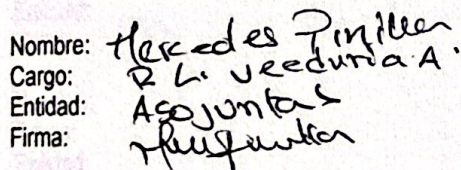 Nombre: Mercedes Pinilla
Cargo: R. L. veeduría A.
Entidad: Asojuntas
Firma: